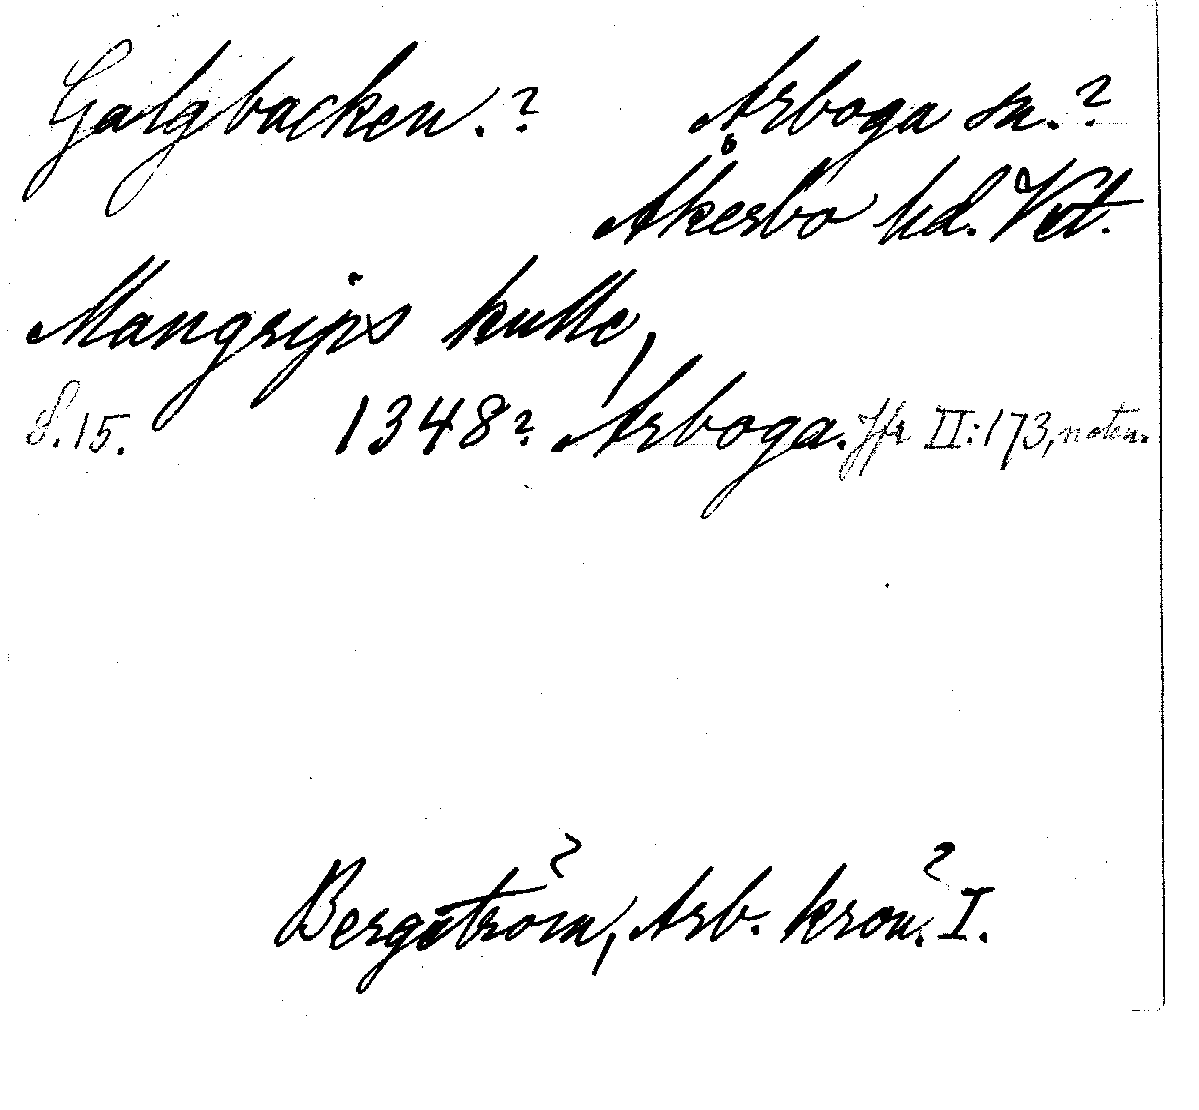 Galgbacken.? Arboga sn.?
Åkerbo hd. Vstl.
Mangrips kulle,
S. 15. 1348? Arboga. Jfr II:173, noten.
Bergström, Arb. krön. I.